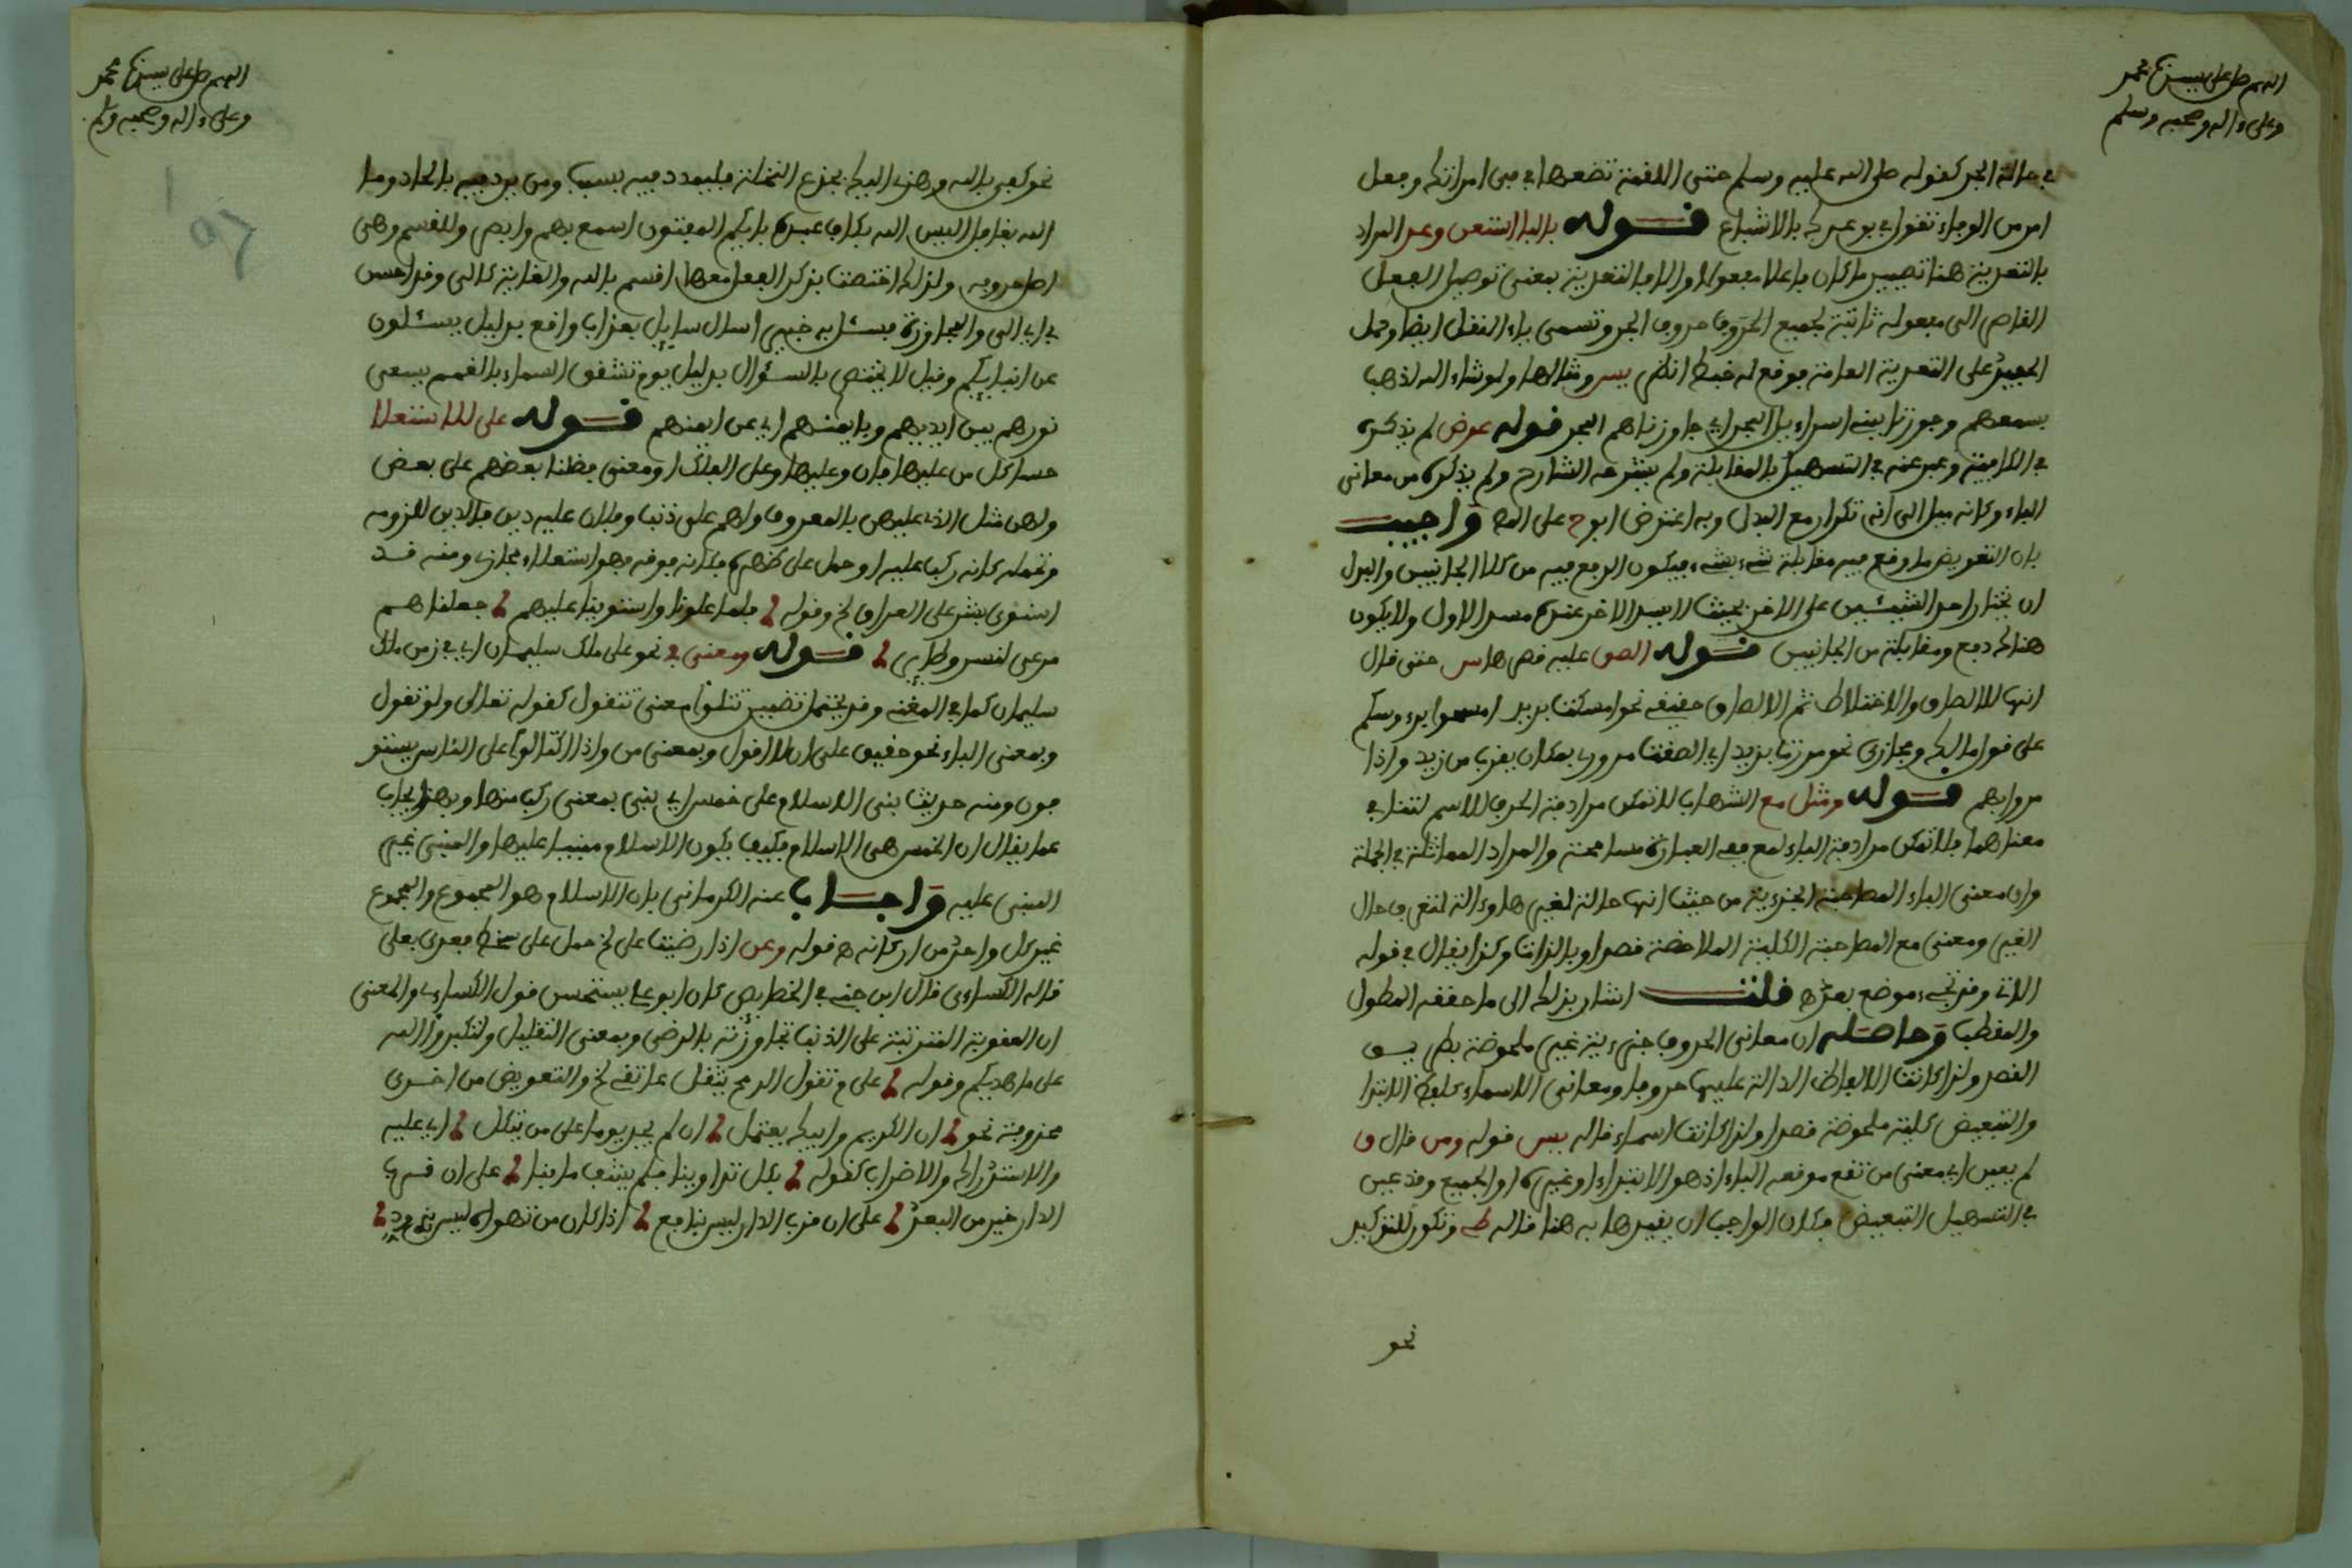 اللهم صل على سيدنا محمد
وعلى ءاله وصحبه وسلم
في حالة الجر كقوله صلى الله عليه وسلم حتى اللقمة تضعها في في امراتك وجعل
امر من الوجاء تقول في بوعمرك بالاشباع قوله بالبا استعن وعد المراد
بالتعدية هنا تصيير ما كان فاعلا مفعولا والا فالتعدية بمعنى توصيل الفعل
القاصر الى مفعوله ثابتة لجميع الحروف حروف الجر وتسمى باء النقل ايضا وحمل
على التعدية العامة فوقع له خبط انظر يس ومثالها ولو شاء الله لذهب
بسمعهم وجوزنا ببنى اسراءيل البحر اي جاوزناهم البحر قوله عوض لم يذكره
في الكافية وعبر عنه في التسهيل بالمقابلة ولم يشرحه الشارح ولم يذكره من معاني
الباء وكانه ميل الى انه تكرار مع البدل وبه اعترض ابوح على المص واجيب
بان التعويض ما وقع فيه مقابلة شيء بشيء فيكون الدفع فيه من كلا الجانبين والبدل
ان تختار احد الشيئين على الاخر بحيث لا يسد الاخر عنده مسد الاول ولا يكون
هناك دفع ومقابلة من الجانبين قوله الصق عليه قصر هاس حتى قال
انها للالصاق والاختلاط ثم الالصاق حقيقي نحو امسكت بزيد امسحوا برءوسكم
على قول مالك ومجازي نحو مررت بزيد اي الصقت مروري بمكان يقرب من زيد واذا
مروا بهم قوله ومثل مع الشهاب لا تمكن مرادفة الحرف للاسم لتنافي
معناهما فلا تمكن مرادفة الباء لمع ففي العبارة مسامحة والمراد المماثلة في الجملة
وان معنى الباء المصاحبة الجزءية من حيث انها حالة لغيرها وءالة لتعرف حال
الغير ومعنى مع المصاحبة الكلية الملاحظة قصدا وبالذات وكذا يقال في قوله
الاتي وقد تجيء موضع بعد اه قلت اشار بذلك الى ما حققه المطول
والقطب وحاصله ان معاني الحروف جزءية غير ملحوظة بطريق
القصد ولذا كانت الالفاظ الدالة عليها حروفا ومعاني الاسماء كلفظ الابتدا
والتبعيض كلية ملحوظة قصدا ولذا كانت اسماء قاله يس قوله ومن قال ق
لم يعين اي معنى من تقع موقعه الباء اذ هو الابتداء او غيره او الجميع وقد عين
في التسهيل التبعيض فكان الواجب ان يقيدها به هنا قاله طه وتكون للتوكيد
نحو
اللهم صل على سيدنا محمد
وعلى ءاله وصحبه وسلم
نحو كفى بالله وهزي اليك بجذع النخلة فليمدد فيه بسبب ومن يرد فيه بالحاد وما
الله بغافل اليس الله بكاف عبده بايكم المفتون اسمع بهم وابصر وللقسم وهي
اصل حروفه ولذلك اختصت بذكر الفعل معها اقسم بالله والغاية كالى وقد احسن
بي اي الي والمجاوزة فسئل به خبيرا سال سايل بعذاب واقع بدليل يسئلون
عن انبايكم وقيل لا يختص بالسؤال بدليل يوم تشقق السماء بالغمم يسعى
نورهم بين ايديهم وبايمنهم اي عن ايمنهم قوله على للاستعلا
حسا كل من عليها فان وعليها وعلى الفلك او معنى فضلنا بعضهم على بعض
ولهن مثل الذي عليهن بالمعروف ولهم على ذنب وفلان عليه دين فالدين للزومه
وتحمله كانه ركب عليه او حمل على ظهره فكانه فوقه فهو استعلاء مجازي ومنه قد
استوى بشر على العراق لخ وقوله فلما علونا واستوينا عليهم جعلناهم
مرعى لنسر وطاير قوله ومعنى في نحو على ملك سليمان اي في زمن ملك
سليمان كما في المغني وقد يحتمل تضمين تتلوا معنى تتقول كقوله تعالى ولو تقول
وبمعنى الباء نحو حقيق على ان لا اقول وبمعنى من واذا اكتالوا على الناس يستو
فون ومنه حديث بني الاسلام على خمس اي بني بمعنى ركب منها وبهذا يجاب
عما يقال ان الخمس هي الاسلام فكيف يكون الاسلام مبنيا عليها والمبني غير
المبني عليه واجاب عنه الكرماني بان الاسلام هو المجموع والمجموع
غير كل واحد من اركانه اه قوله وعن اذا رضيت على لخ حمل على سخط فعدي بعلى
قاله الكساءي قال ابن جني في الخصايص كان ابو علي يستحسن قول الكساءي والمعنى
ان العقوبة المترتبة على الذنب تجاوزته بالرضى وبمعنى التعليل ولتكبروا الله
على ما هديكم وقوله على م تقول الرمح يثقل عاتقي لخ والتعويض من اخرى
محذوفة نحو ان الكريم وابيك يعتمل ان لم يجد يوما على من يتكل اي عليه
والاستدراك والاضراب كقوله بكل تداوينا فلم يشف ما بنا على ان قرب
الدار خير من البعد على ان قرب الدار ليس بنافع اذا كان من تهواه ليس بذي ود